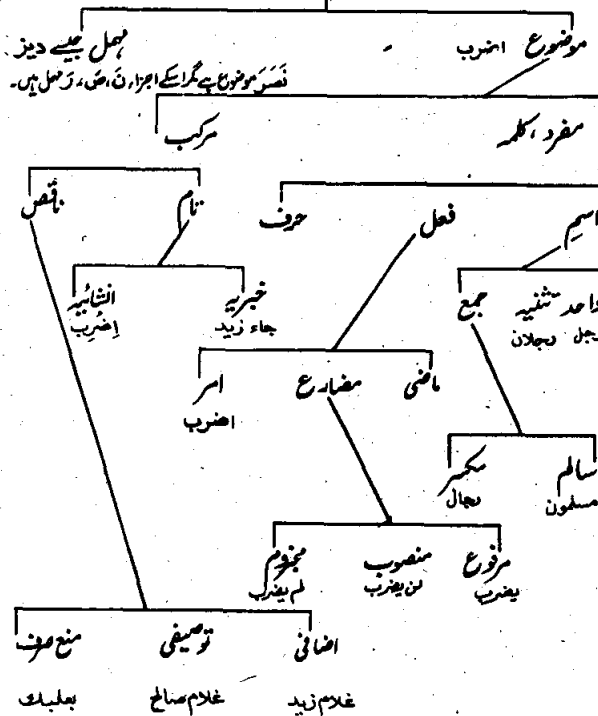 موضوع اضرب مہمل جیسے دیز
نَصَرَ موضوع ہے مگر اسکے اجزاء نَ، صَ، رَ مہمل ہیں۔
مفرد، کلمہ مرکب
اسم فعل حرف تام ناقص
واحد تثنیہ جمع خبریہ انشائیہ
رجل رجلان جاء زید اِضْرِب
ماضی مضارع امر
اضرب
سالم مکسر
مسلمون رجال
مرفوع منصوب مجزوم
یضرب لن یضرب لم یضرب
اضافی توصیفی منع صرف
غلام زید غلام صالح بعلبک